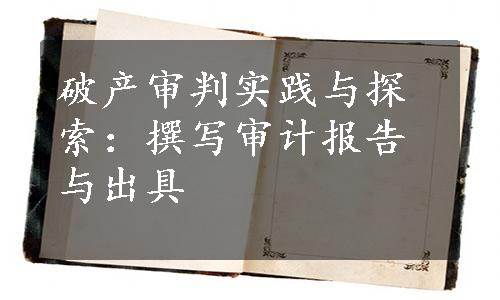 破产审判实践与探
索：撰写审计报告
与出具